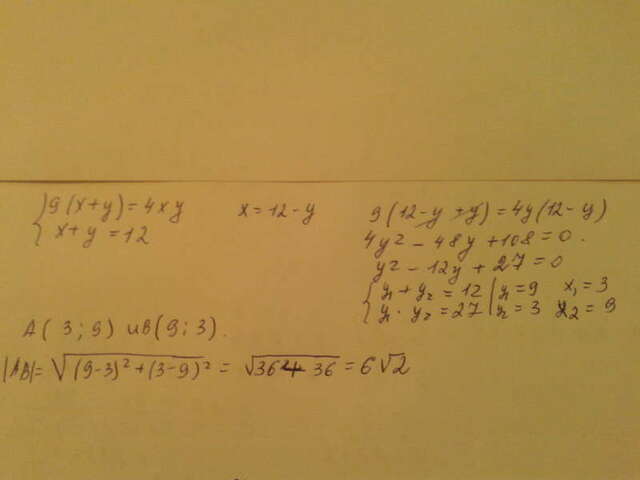 {9(x+y)=4xy
{x+y=12
x=12-y
9(12-y+y)=4y(12-y)
4y²-48y+108=0.
y²-12y+27=0
{y₁+y₂=12 | y₁=9 x₁=3
{y₁·y₂=27 | y₂=3 x₂=9
A(3;9) и B(9;3).
|AB|=√(9-3)²+(3-9)² = √36+36 = 6√2